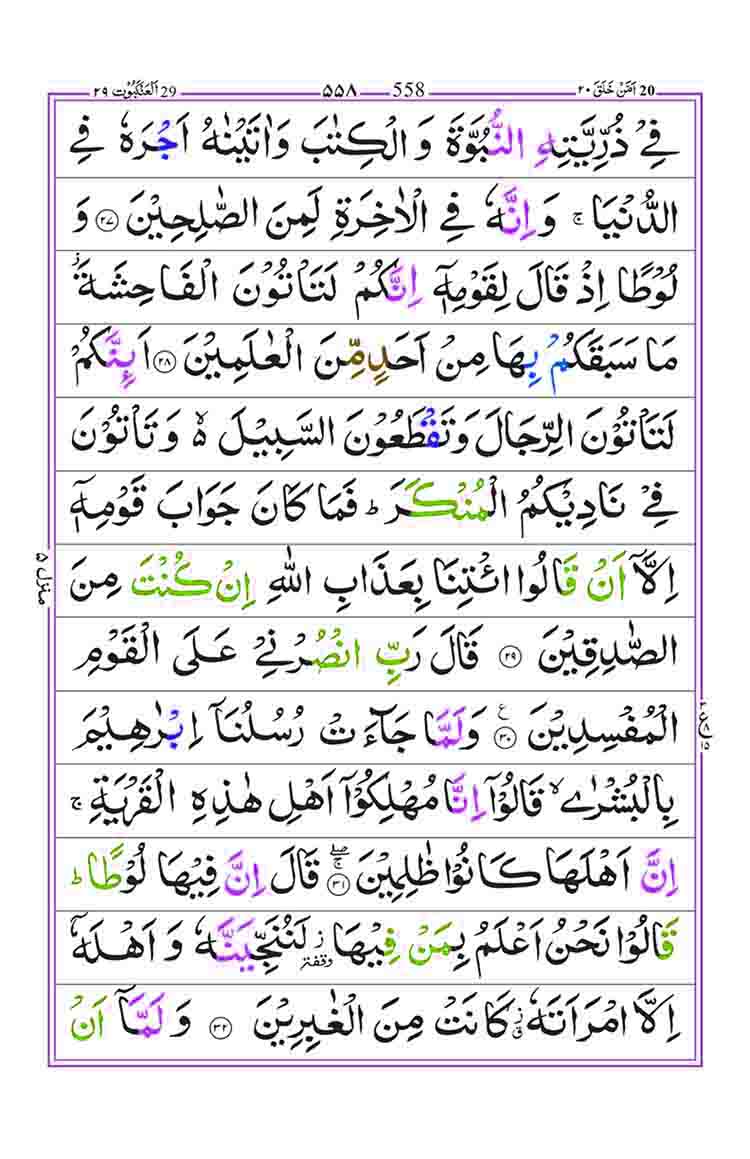 اَمَّنْ خَلَقَ ٢٠ 20 558 ٥٥٨ 29 اَلْعَنْكَبُوْت ٢٩
فِيْ ذُرِّيَّتِهِ النُّبُوَّةَ وَ الْكِتٰبَ وَاٰتَيْنٰهُ اَجْرَهٗ فِي
الدُّنْيَا ۚ وَاِنَّهٗ فِي الْاٰخِرَةِ لَمِنَ الصّٰلِحِيْنَ ٢٧ وَ
لُوْطًا اِذْ قَالَ لِقَوْمِهٖٓ اِنَّكُمْ لَتَاْتُوْنَ الْفَاحِشَةَ ز
مَا سَبَقَكُمْ بِهَا مِنْ اَحَدٍ مِّنَ الْعٰلَمِيْنَ ٢٨ اَئِنَّكُمْ
لَتَاْتُوْنَ الرِّجَالَ وَتَقْطَعُوْنَ السَّبِيْلَ ۵ وَ تَاْتُوْنَ
فِيْ نَادِيْكُمُ الْمُنْكَرَ ط فَمَا كَانَ جَوَابَ قَوْمِهٖٓ
اِلَّآ اَنْ قَالُوا ائْتِنَا بِعَذَابِ اللّٰهِ اِنْ كُنْتَ مِنَ
الصّٰدِقِيْنَ ٢٩ قَالَ رَبِّ انْصُرْنِيْ عَلَى الْقَوْمِ
الْمُفْسِدِيْنَ ٣٠ ع وَلَمَّا جَآءَتْ رُسُلُنَآ اِبْرٰهِيْمَ
بِالْبُشْرٰى لا قَالُوْٓا اِنَّا مُهْلِكُوْٓا اَهْلِ هٰذِهِ الْقَرْيَةِ ۚ
اِنَّ اَهْلَهَا كَانُوْا ظٰلِمِيْنَ ٣١ ج صلے قَالَ اِنَّ فِيْهَا لُوْطًا ط
قَالُوْا نَحْنُ اَعْلَمُ بِمَنْ فِيْهَا ز وقفة لَنُنَجِّيَنَّهٗ وَ اَهْلَهٗٓ
اِلَّا امْرَاَتَهٗ ز ق كَانَتْ مِنَ الْغٰبِرِيْنَ ٣٢ وَ لَمَّآ اَنْ
منزل ٥